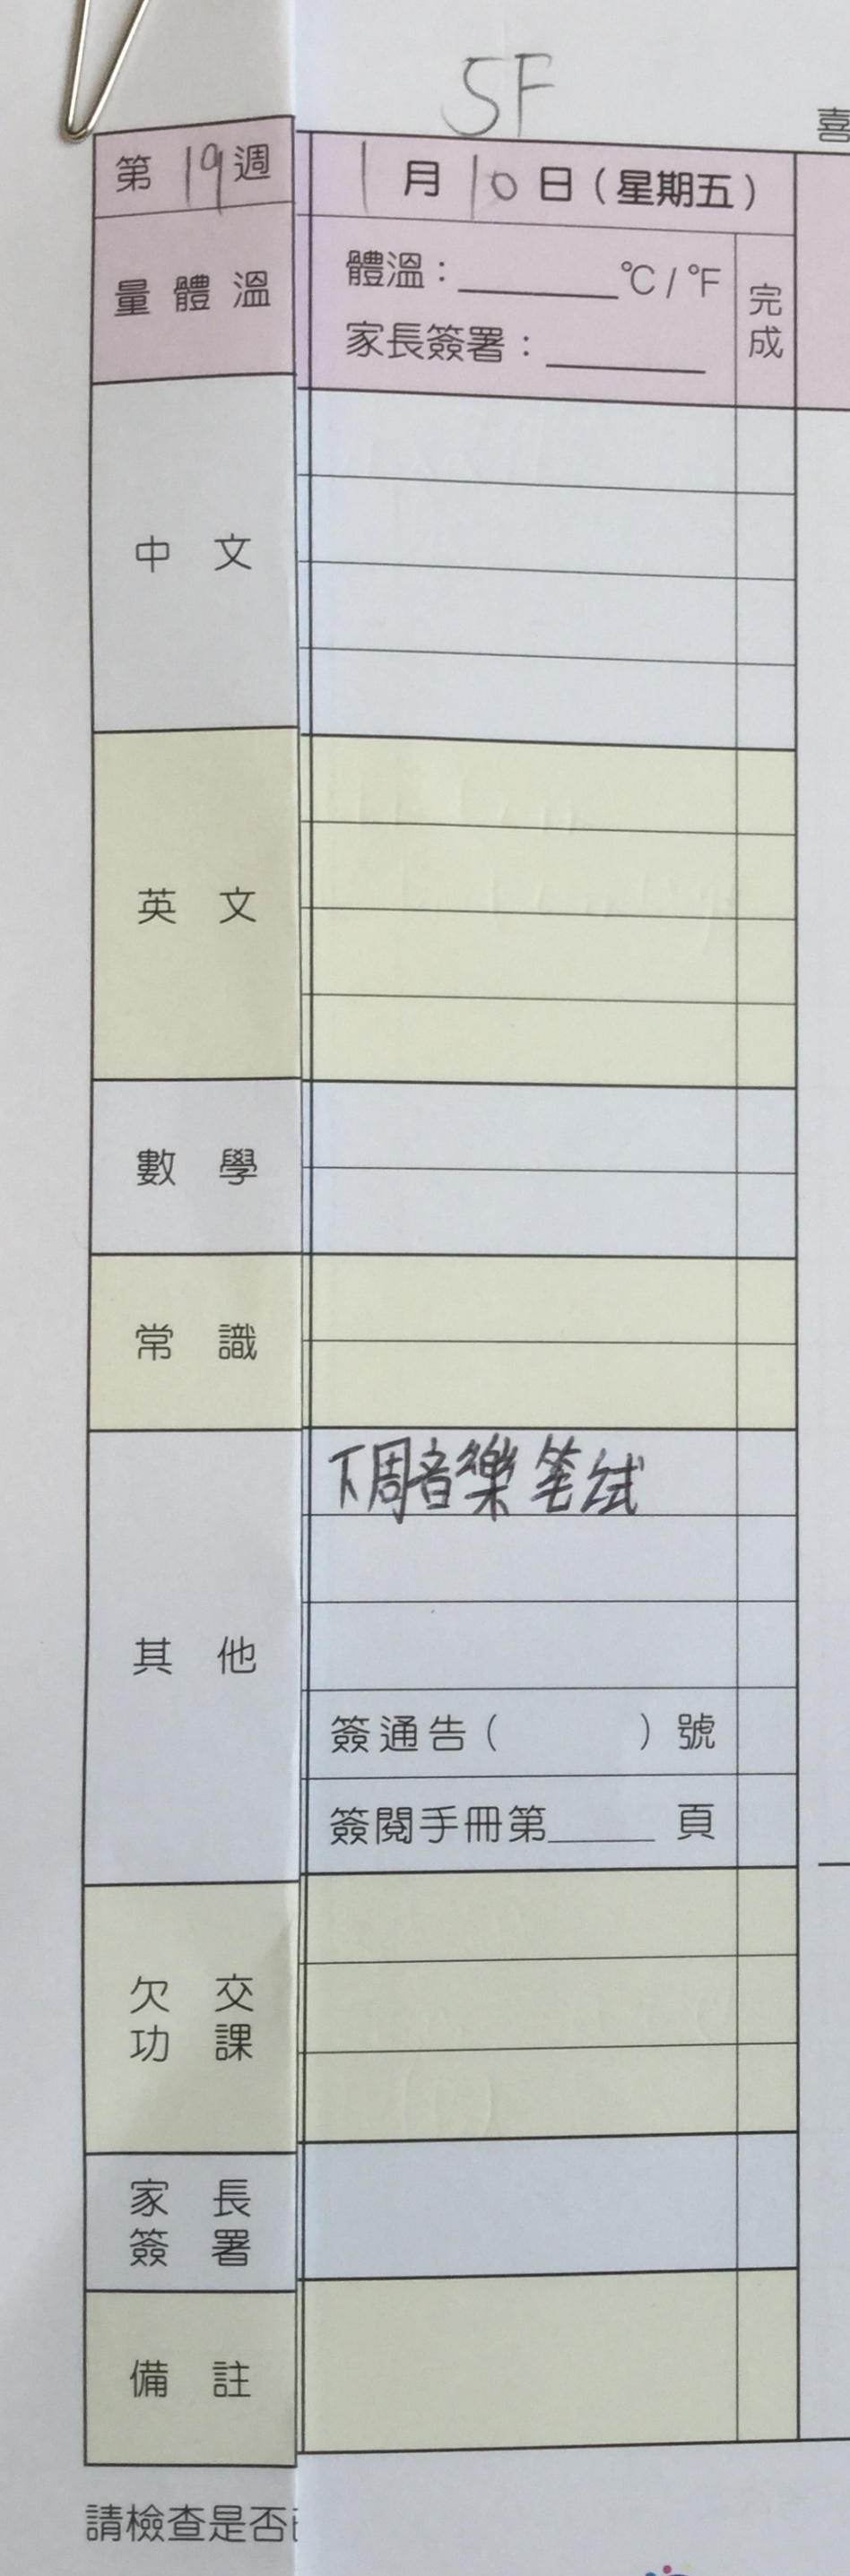 5F
喜
第 19 週 1 月 10 日（星期五）
量 體 溫 體溫：______°C / °F 完成
家長簽署：______
中 文
英 文
數 學
常 識
其 他 下周音樂笔试
簽通告（ ）號
簽閱手冊第_____ 頁
欠 交
功 課
家 長
簽 署
備 註
請檢查是否